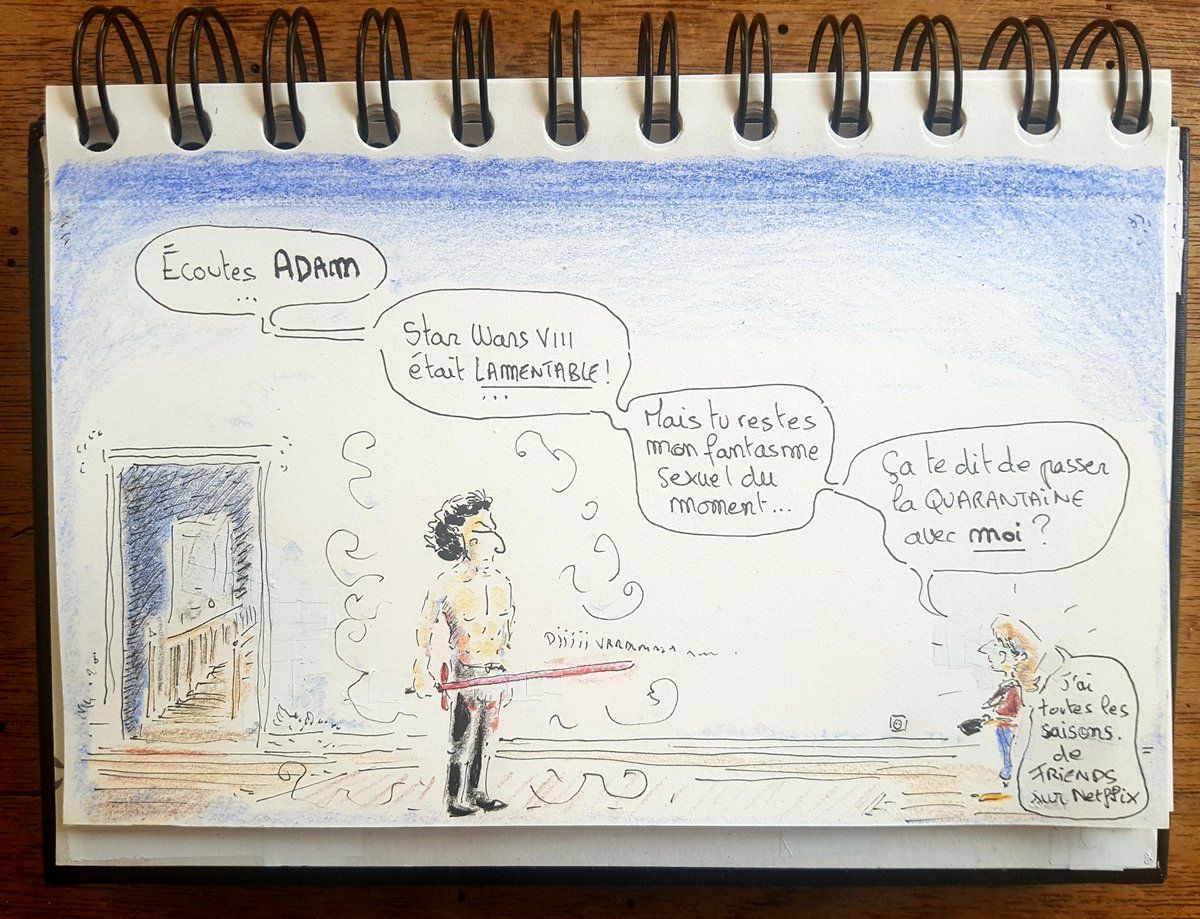 Écoutes ADAM
...
Star Wars VIII
était LAMENTABLE !
...
Mais tu restes
mon fantasme
sexuel du
moment...
Ça te dit de passer
la QUARANTAINE
avec moi ?
j'ai
toutes les
saisons.
de
FRIENDS
sur Netflix